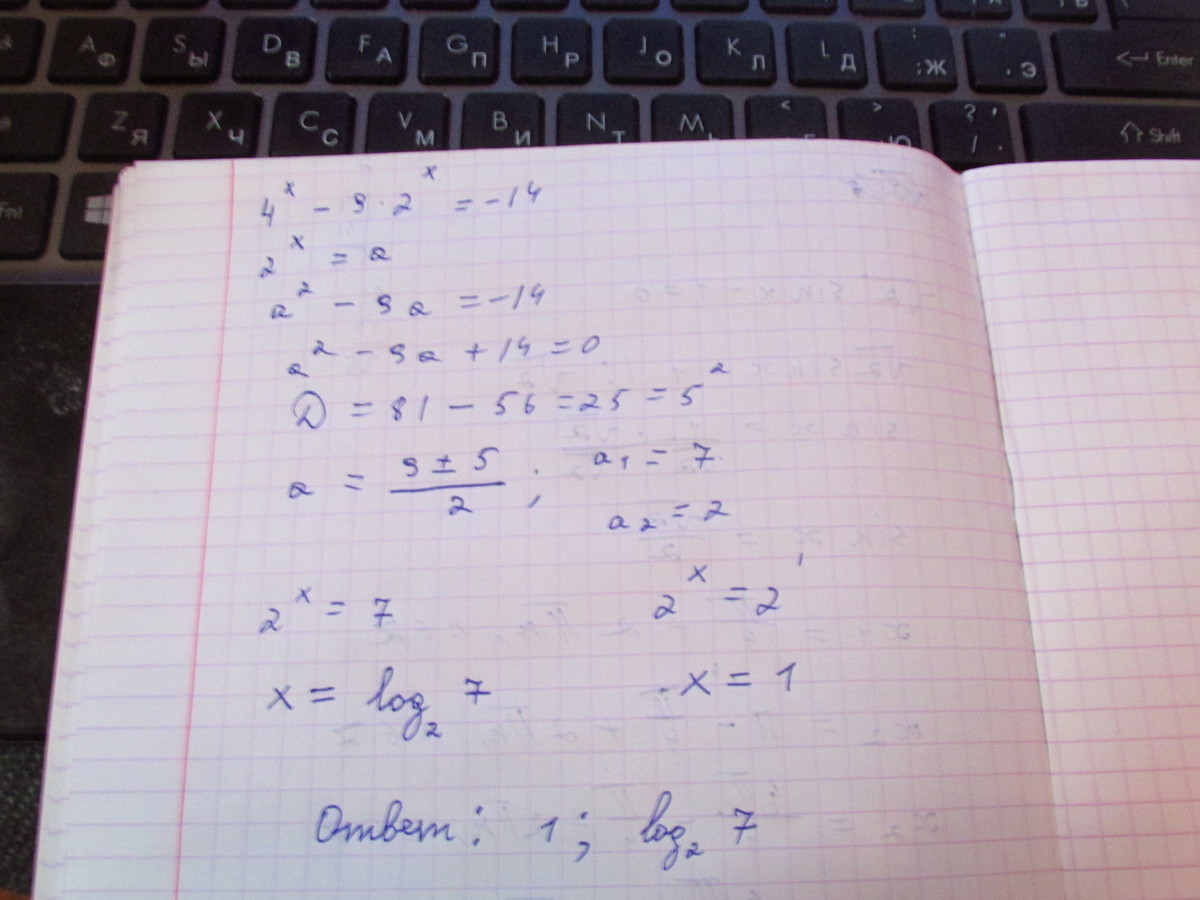 A Ф S Ы D В F А G П H Р J О K Л L Д : ; Ж " ' Э Enter
Z Я X Ч C С V М B И N Т M Ь < > ? , / . Shift
Fn
4^x - 9 · 2^x = -14
2^x = a
a^2 - 9a = -14
a^2 - 9a + 14 = 0
D = 81 - 56 = 25 = 5^2
a = (9 ± 5)/2 ; a1 = 7
a2 = 2
2^x = 7 2^x = 2^1
x = log2 7 x = 1
Ответ: 1; log2 7